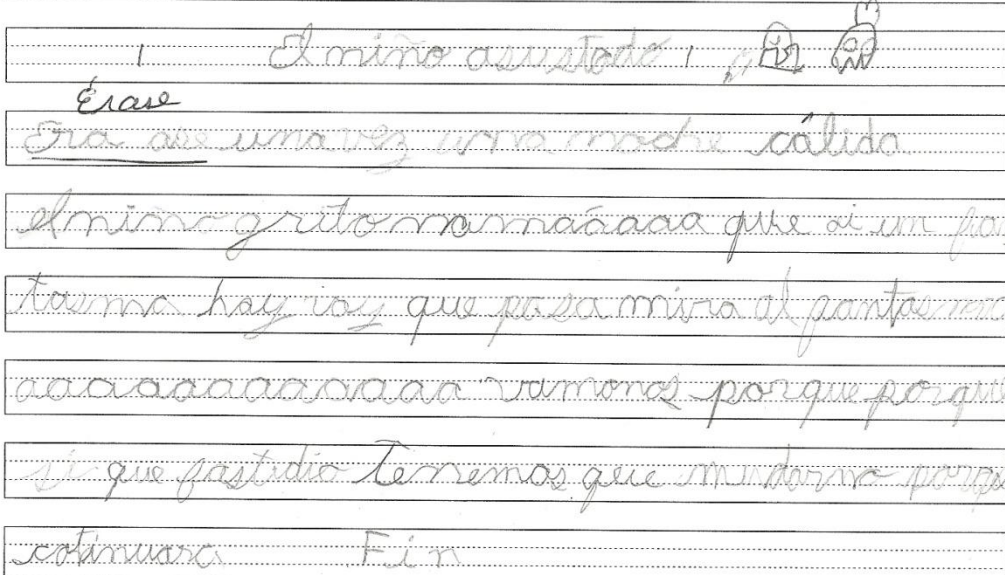 El niño asustado
Érase
Era ase una vez una noche cálida
el niño grito mamáaaaa que ai un fan
tasma hay iay que pasa mira al fantasma
aaaaaaaaaaaaa vamonos porque porque
si que fastidio tenemos que mudarno porque
cotinuara Fin